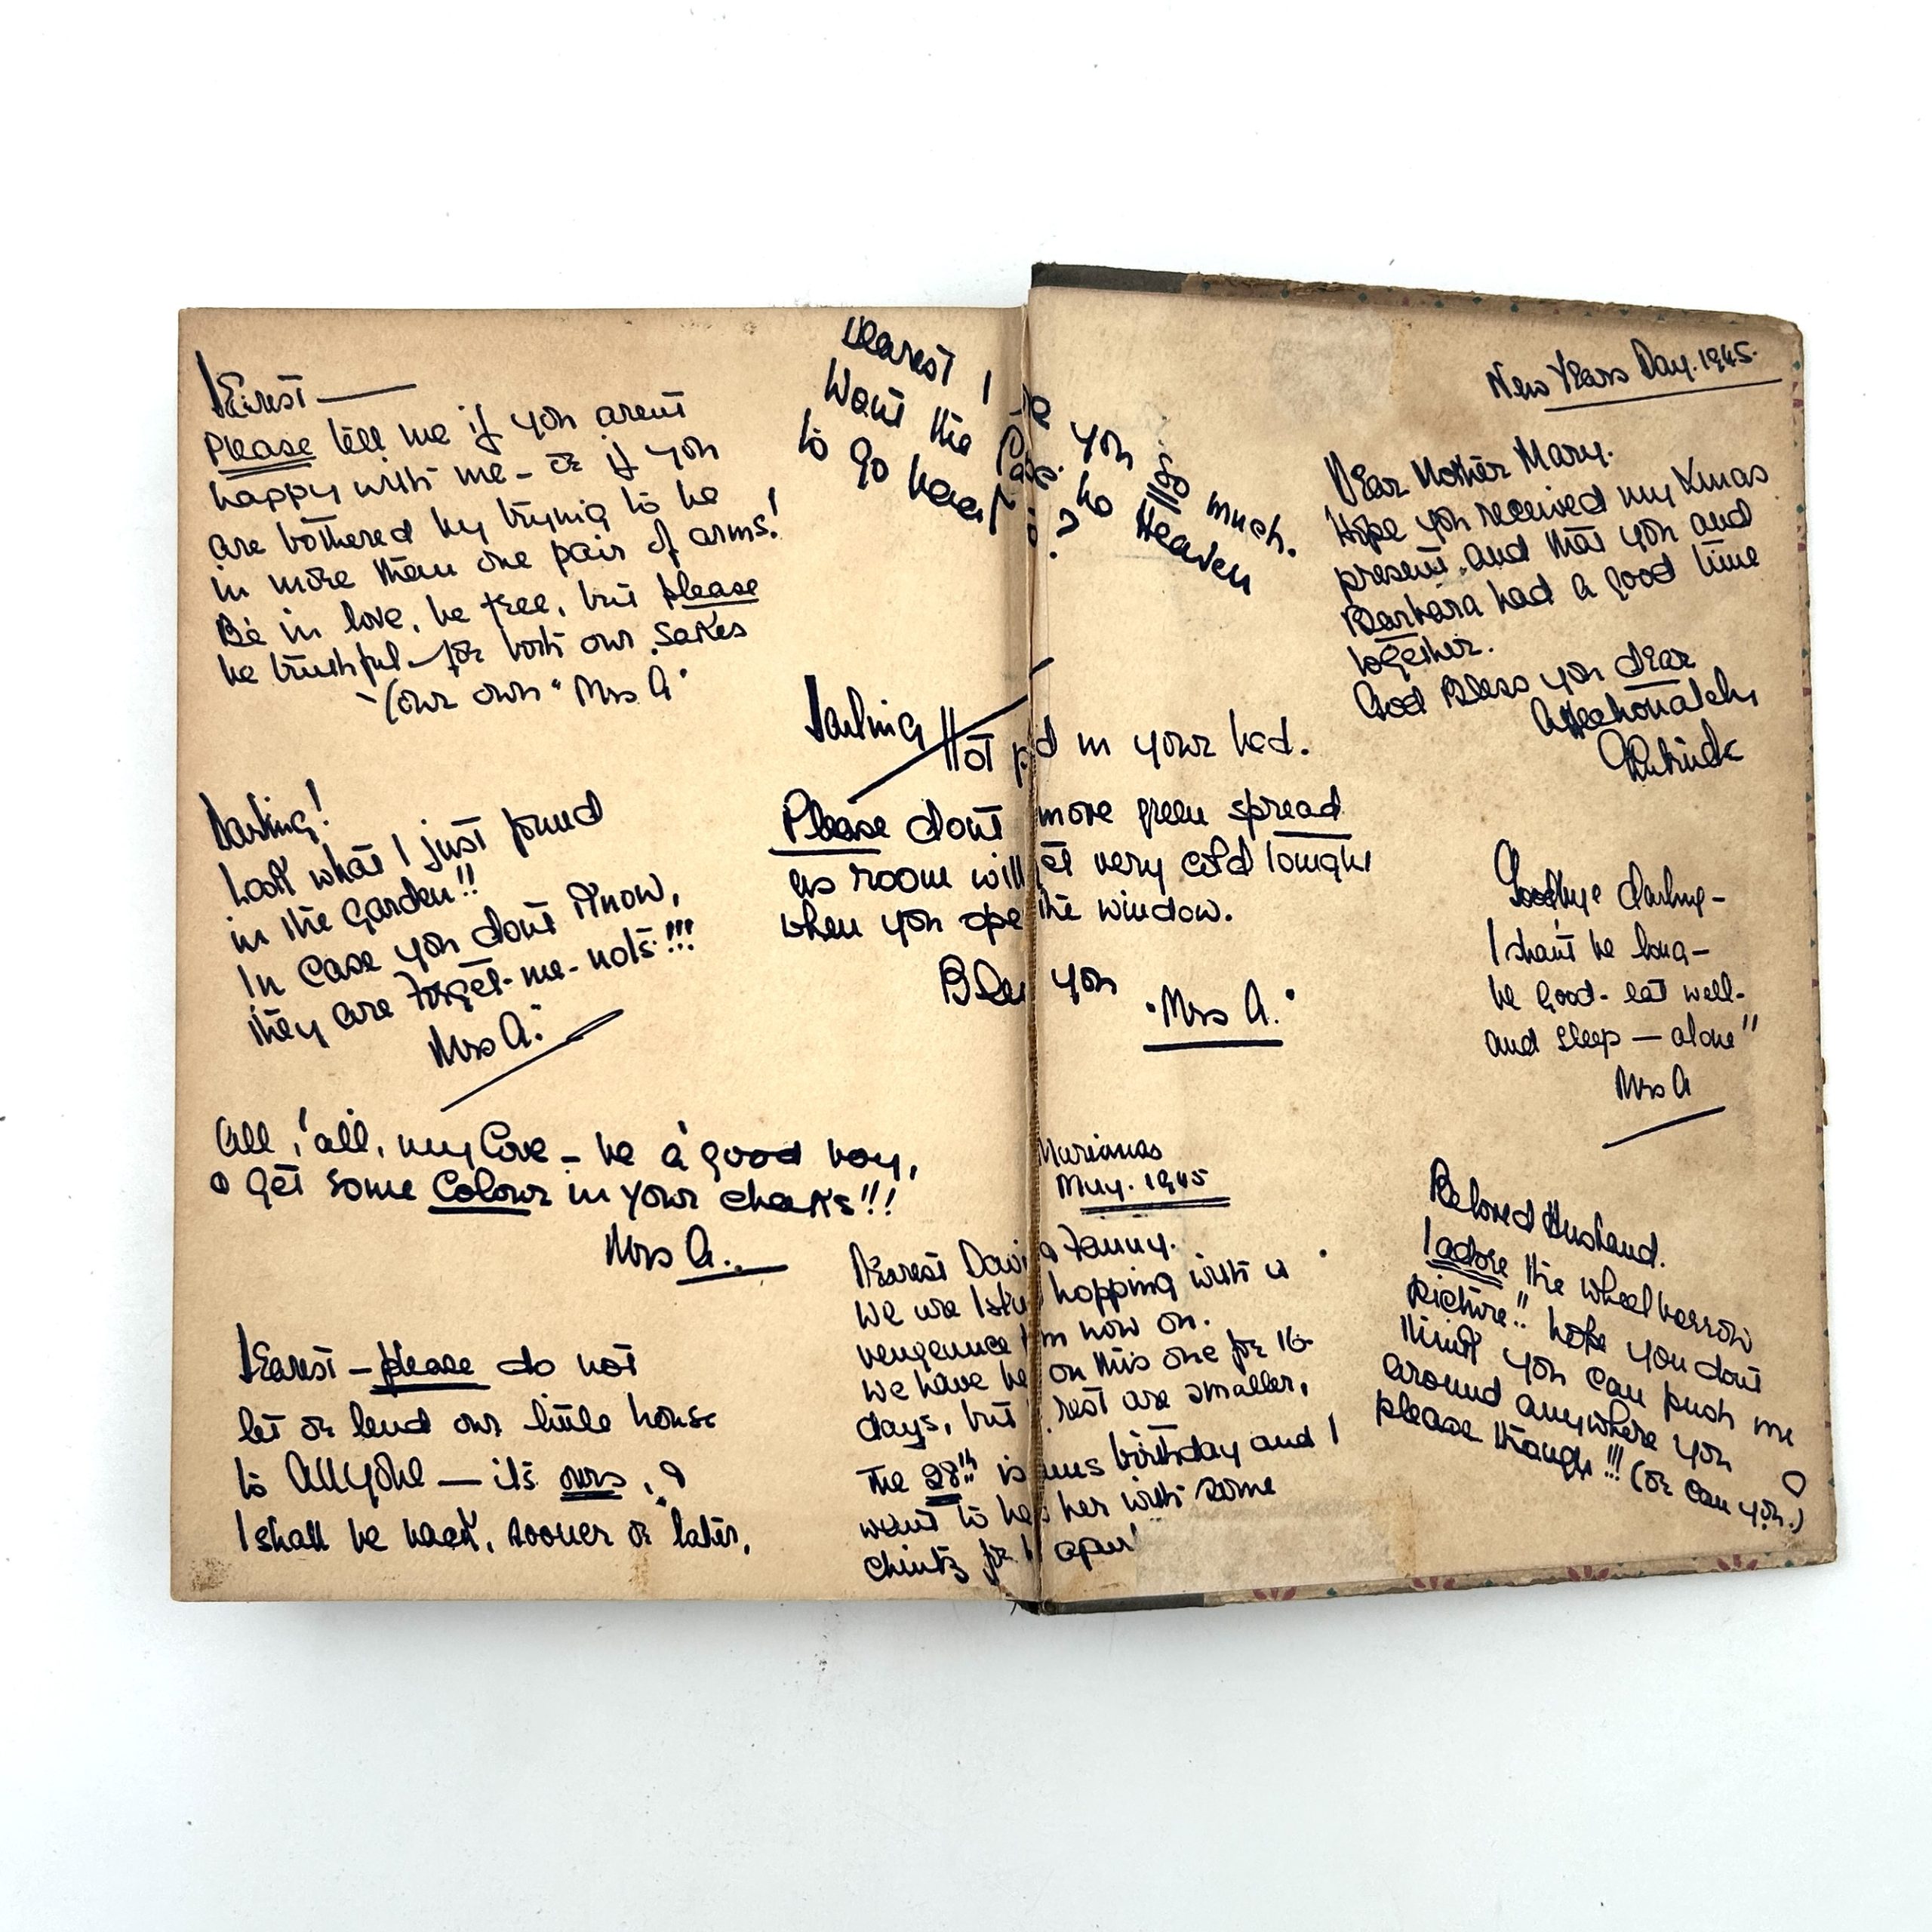 Dearest —
Please tell me if you arent
happy with me - or if you
are bothered by trying to be
in more than one pair of arms!
Be in love, be free, but please
be truthful - for both our sakes
Your own "Mrs A"
Darling!
Look what I just found
in the garden!!
In case you dont know,
they are Forget-me-nots!!!
Mrs A.
All, all, my love - be a good boy,
& get some Colour in your cheeks!!!
Mrs A..
Dearest - please do not
let or lend our little house
to anyone — its ours, &
I shall be back, sooner or later.
Dearest I you so much.
Want the no Heaven
to go ?
Darling Hot in your bed.
Please dont more green spread
as room will get very cold tonight
when you the window.
you
"Mrs A."
Marianas
May. 1945
Dearest & Fenny.
We are hopping with a
vengeance now on.
We have on this one for 16
days, but rest are smaller,
The 28th is birthday and I
want to her with some
chintz for
New Years Day. 1945.
Dear Mother Mary.
Hope you received my Xmas
present, and that you and
Barbara had a good time
together.
God Bless you dear
Affectionately
Patrick
Goodbye darling -
I shant be long -
be good - eat well -
and sleep — alone"
Mrs A
Beloved Husband.
I adore the wheelbarrow
picture!! hope you dont
think you can push me
around anywhere you
please though!!! (or can you.)